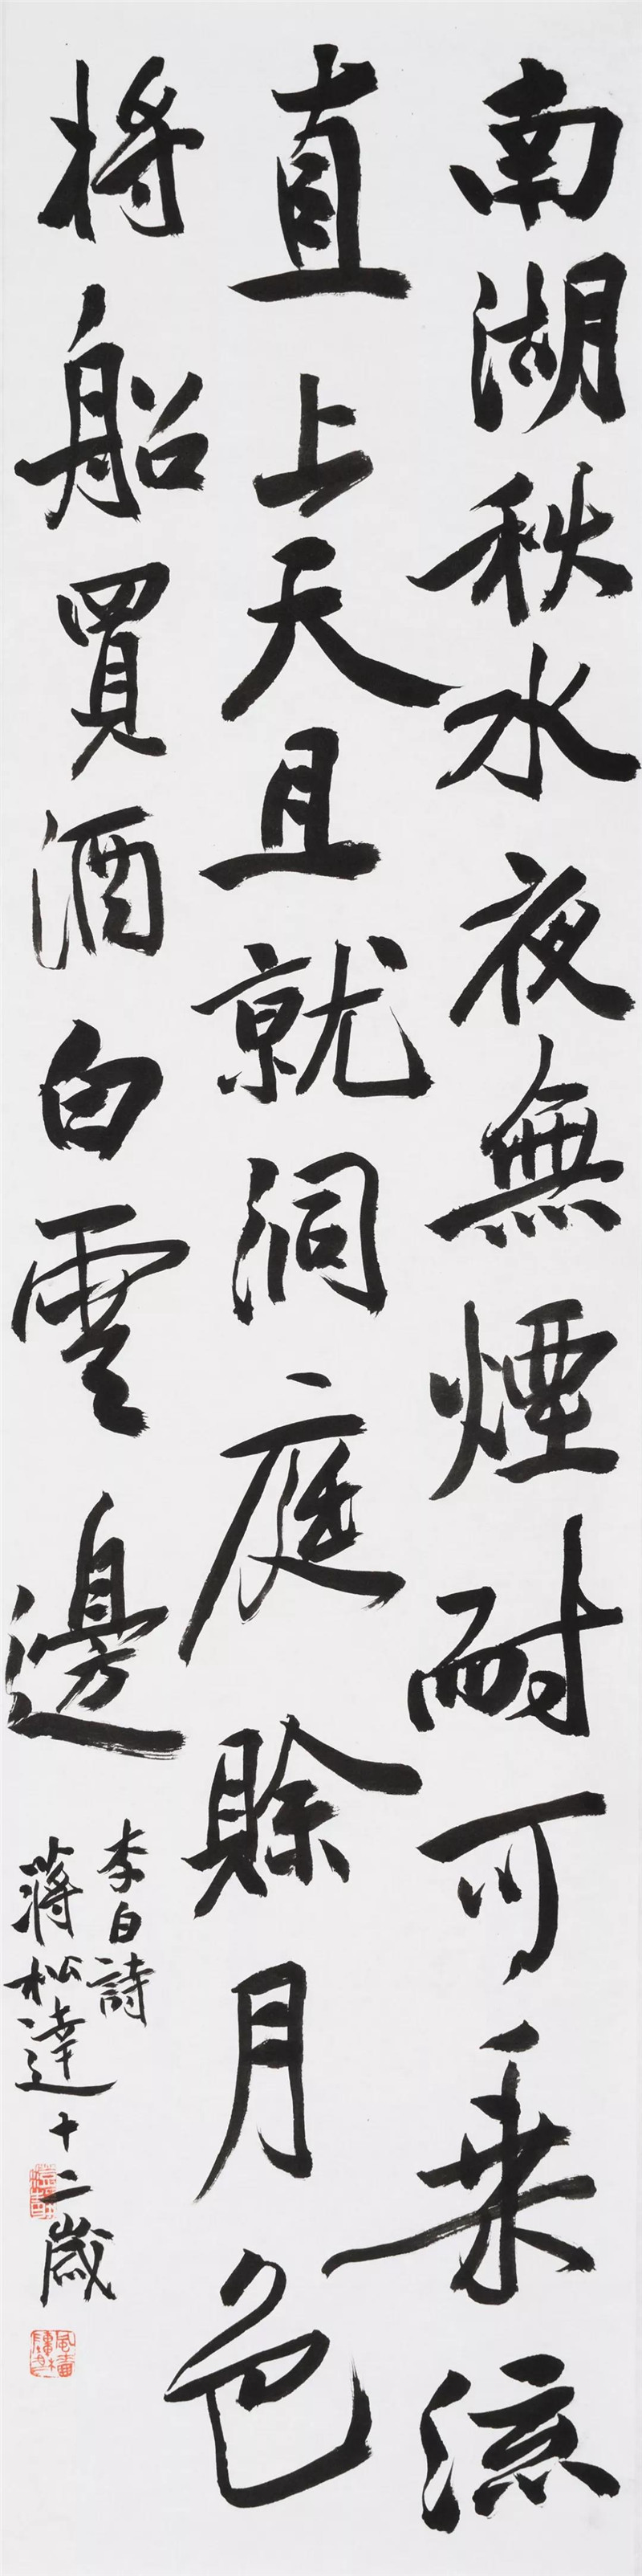 南湖秋水夜無煙耐可乘流
直上天且就洞庭賒月色
將船買酒白雲邊
李白詩
蔣松達十二歲